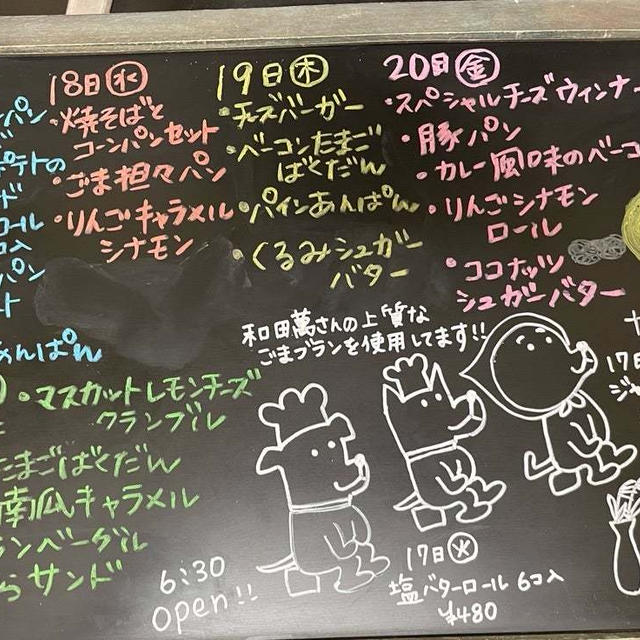 18日㊌
焼そばと
コーンパンセット
ごま担々パン
・りんごキャラメル
シナモン
19日㊍
・チーズバーガー
・ベーコンたまご
ばくだん
・パインあんぱん
・くるみシュガー
バター
20日㊎
・スペシャルチーズウィンナー
・豚パン
・カレー風味のベーコ
・りんごシナモン
ロール
・ココナッツ
シュガーバター
パン
ポテトの
ド
ロール
コ入
パン
ト
あんぱん
・マスカットレモンチーズ
クランブル
たまごばくだん
南瓜キャラメル
ンベーグル
サンド
和田萬さんの上質な
ごまプランを使用してます!!
6:30
open!!
17日㊋
塩バターロール 6コ入
¥480
17日
ジ